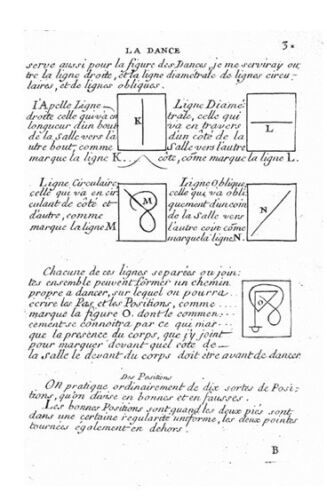 LA DANCE
3.
serve aussi pour la figure des Dances, je me serviray ou
tre la ligne droite, et la ligne diametrale de lignes circu-
laires, et de lignes obliques.
J'apelle Ligne
droite celle qui va en
longueur d'un bout
de la Salle vers la
utre bout, comme
marque la ligne K.
K
Ligne Diamé
trale, celle qui
va en travers
d'un côté de la
Salle vers l'autre
côte, côme marque la ligne L.
L
Ligne Circulaire
celle qui va en cir
culant de côté et
d'autre, comme
marque la ligne M
M
Ligne Oblique
celle qui va obli
quement d'un coin
de la Salle vers
l'autre coin côme
marque la ligne N.
N
Chacune de ces lignes separées ou join:
tes ensemble peuvent former un chemin
propre a dancer, sur lequel on pourra
ecrire les Pas et les Positions, comme
marque la figure O. dont le commen:
cement se connoitra par ce qui mar
que la presence du corps, que j'y joint
pour marquer devant quel côté de
la Salle le devant du corps doit être avant de dancer
O
Des Positions
On pratique ordinairement de dix sortes de Posi:
tions, qu'on divise en bonnes et en fausses.
Les bonnes Positions sont quand les deux pieds sont
dans une certaine regularité uniforme, les deux pointes
tournées egalement en dehors.
B